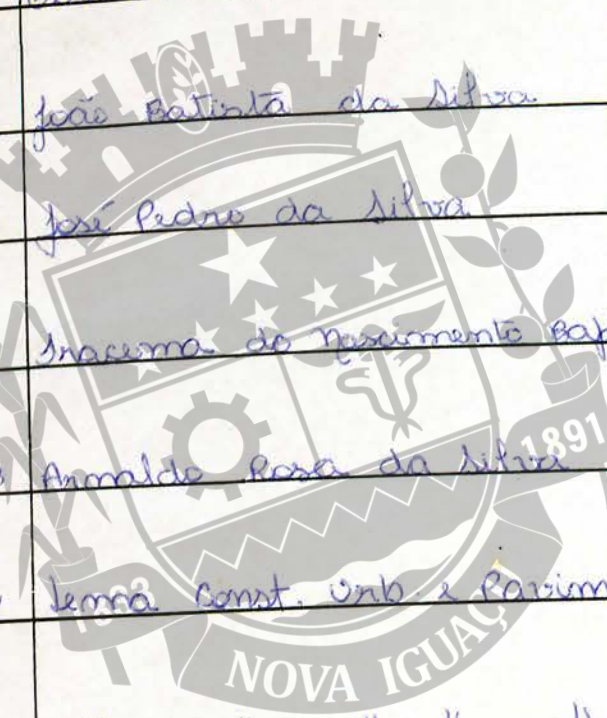 João Batista da Silva
José Pedro da Silva
Iracema do Nascimento Bap
Arnaldo Rosa da Silva
1891
const. urb. e Pavim
NOVA IGUAÇU